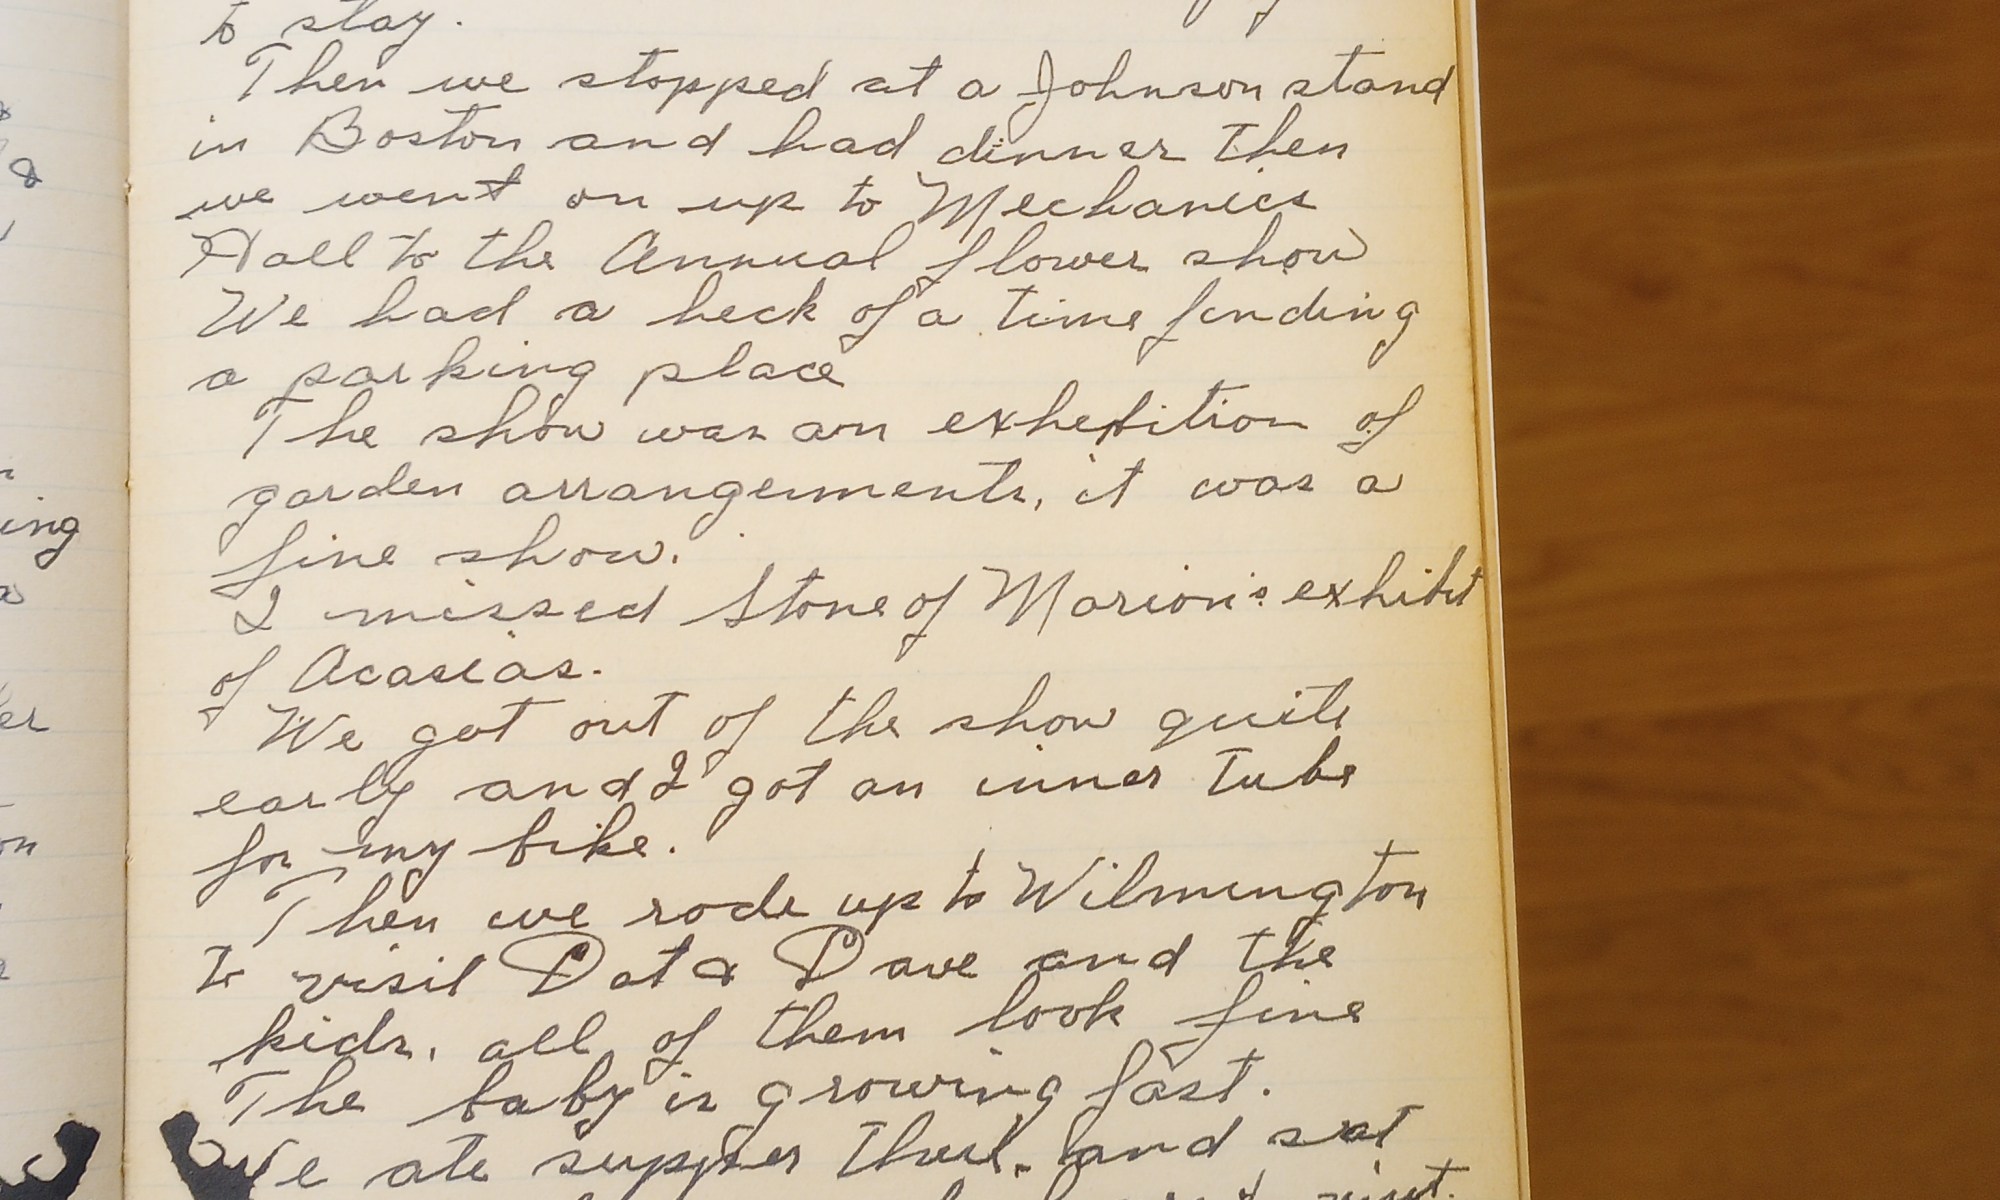 to stay.
Then we stopped at a Johnson stand
in Boston and had dinner then
we went on up to Mechanics
Hall to the Annual flower show
We had a heck of a time finding
a parking place
The show was an exhebition of
garden arrangements, it was a
fine show.
I missed Stone of Marion's exhibit
of Acasias.
We got out of the show quite
early and I got an inner tube
for my bike.
Then we rode up to Wilmington
to visit Dot & Dave and the
kids, all of them look fine
The baby is growing fast.
We ate supper there. and sat
visit.
&
ing
er
on